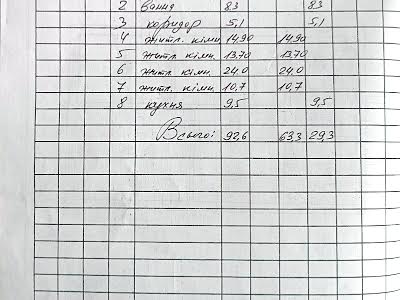 2 ванна 8,3 8,3
3 коридор 5,1 5,1
4 житл. кімн. 14,90 14,90
5 житл. кімн. 13,70 13,70
6 житл. кімн. 24,0 24,0
7 житл. кімн. 10,7 10,7
8 кухня 9,5 9,5
Всього: 92,6 63,3 29,3